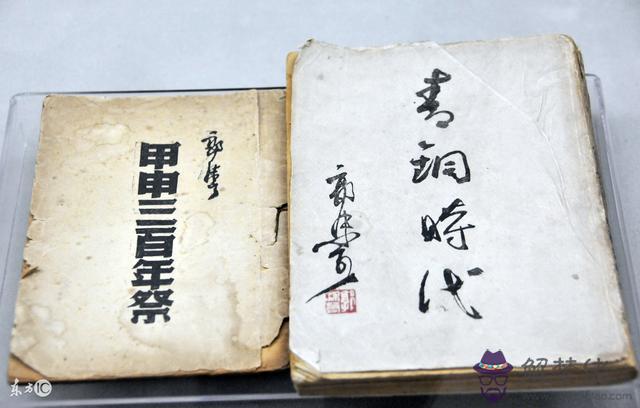 甲申三百年祭
青銅時代
郭沫若
东方IC